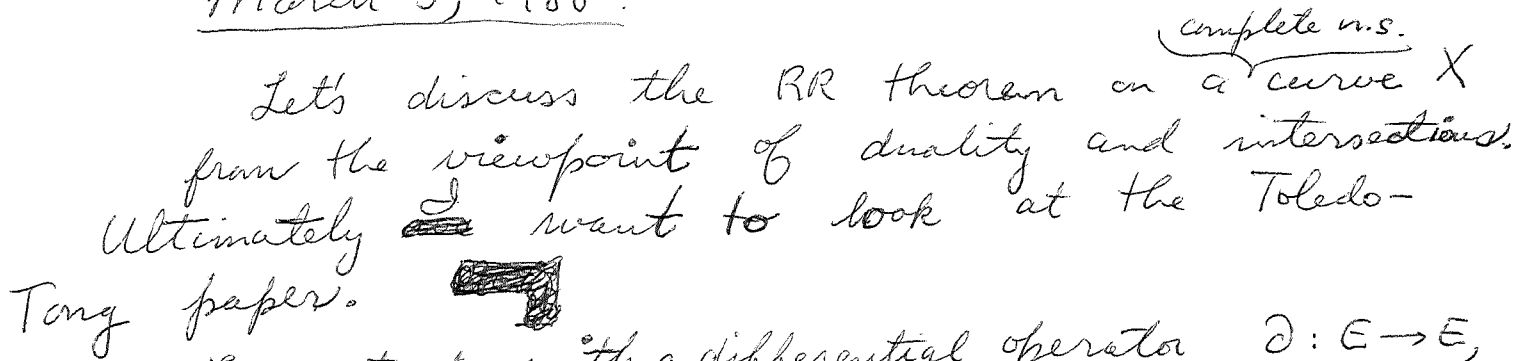 complete n.s.
Let's discuss the RR theorem on a curve X
from the viewpoint of duality and intersections.
Ultimately I want to look at the Toledo-
Tong paper.
with a differential operator ∂ : E → E,